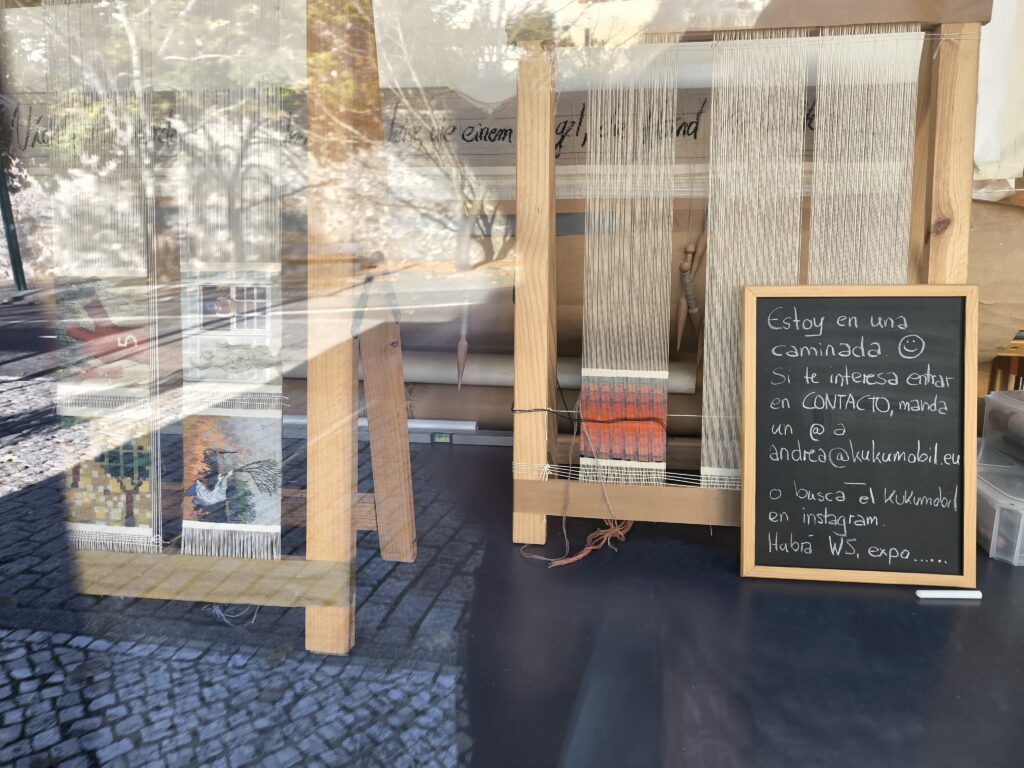 einem
Estoy en una
caminada ☺
Si te interesa entrar
en CONTACTO, manda
un @ a
andrea@kukumobil.eu
o busca el kukumobil
en instagram.
Habrá WS, expo......
5